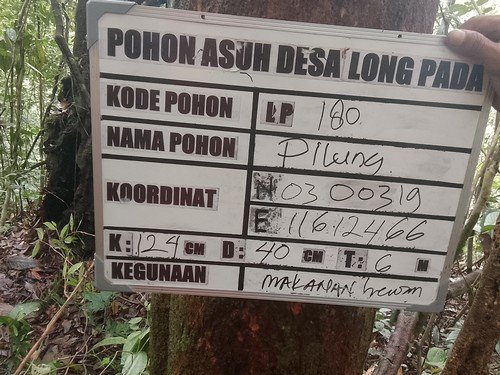 POHON ASUH DESA LONG PADA
KODE POHON LP 180
NAMA POHON Pilung.
KOORDINAT N 03 00319
E 116.12466
K: 124 CM D: 40 CM T: 6 M
KEGUNAAN MAKANAN hewan